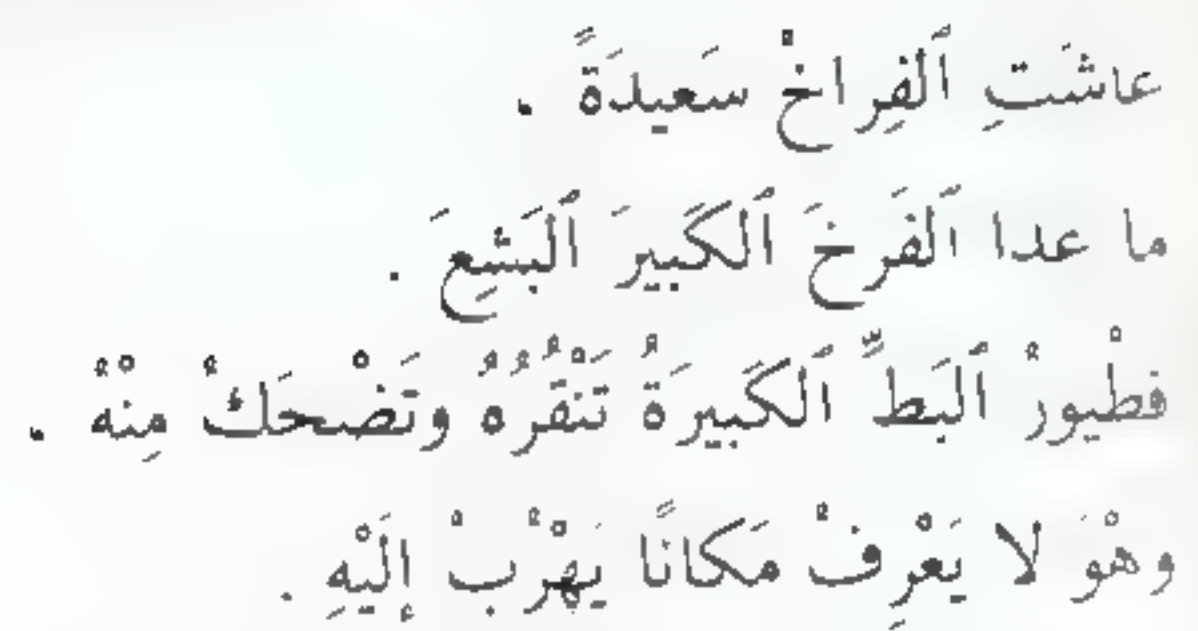 عاشَتِ ٱلفِراخُ سَعيدَةً .
ما عدا ٱلفَرخَ ٱلكَبيرَ ٱلبَشِعَ .
فطُيورُ ٱلبَطِّ ٱلكَبيرَةُ تَنْقُرُهُ وتَضْحَكُ مِنْهُ .
وهُوَ لا يَعْرِفُ مَكانًا يَهْرُبُ إلَيْهِ .